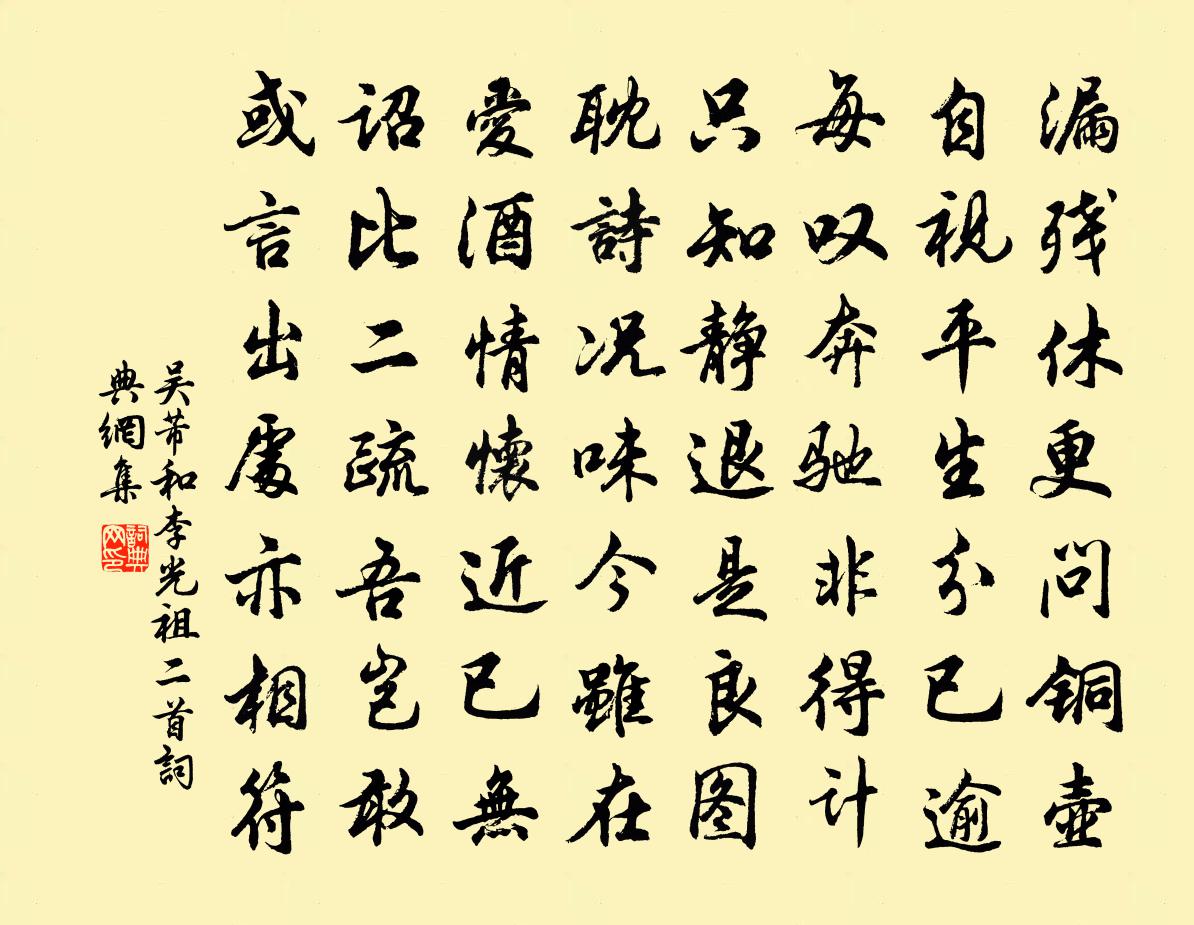 漏残休更问铜壶
自视平生分已逾
每叹奔驰非得计
只知静退是良图
耽詩况味今雖在
愛酒情懷近已無
诏比二疏吾岂敢
或言出處亦相符
吴芾和李光祖二首詞
典網集
詞典网印